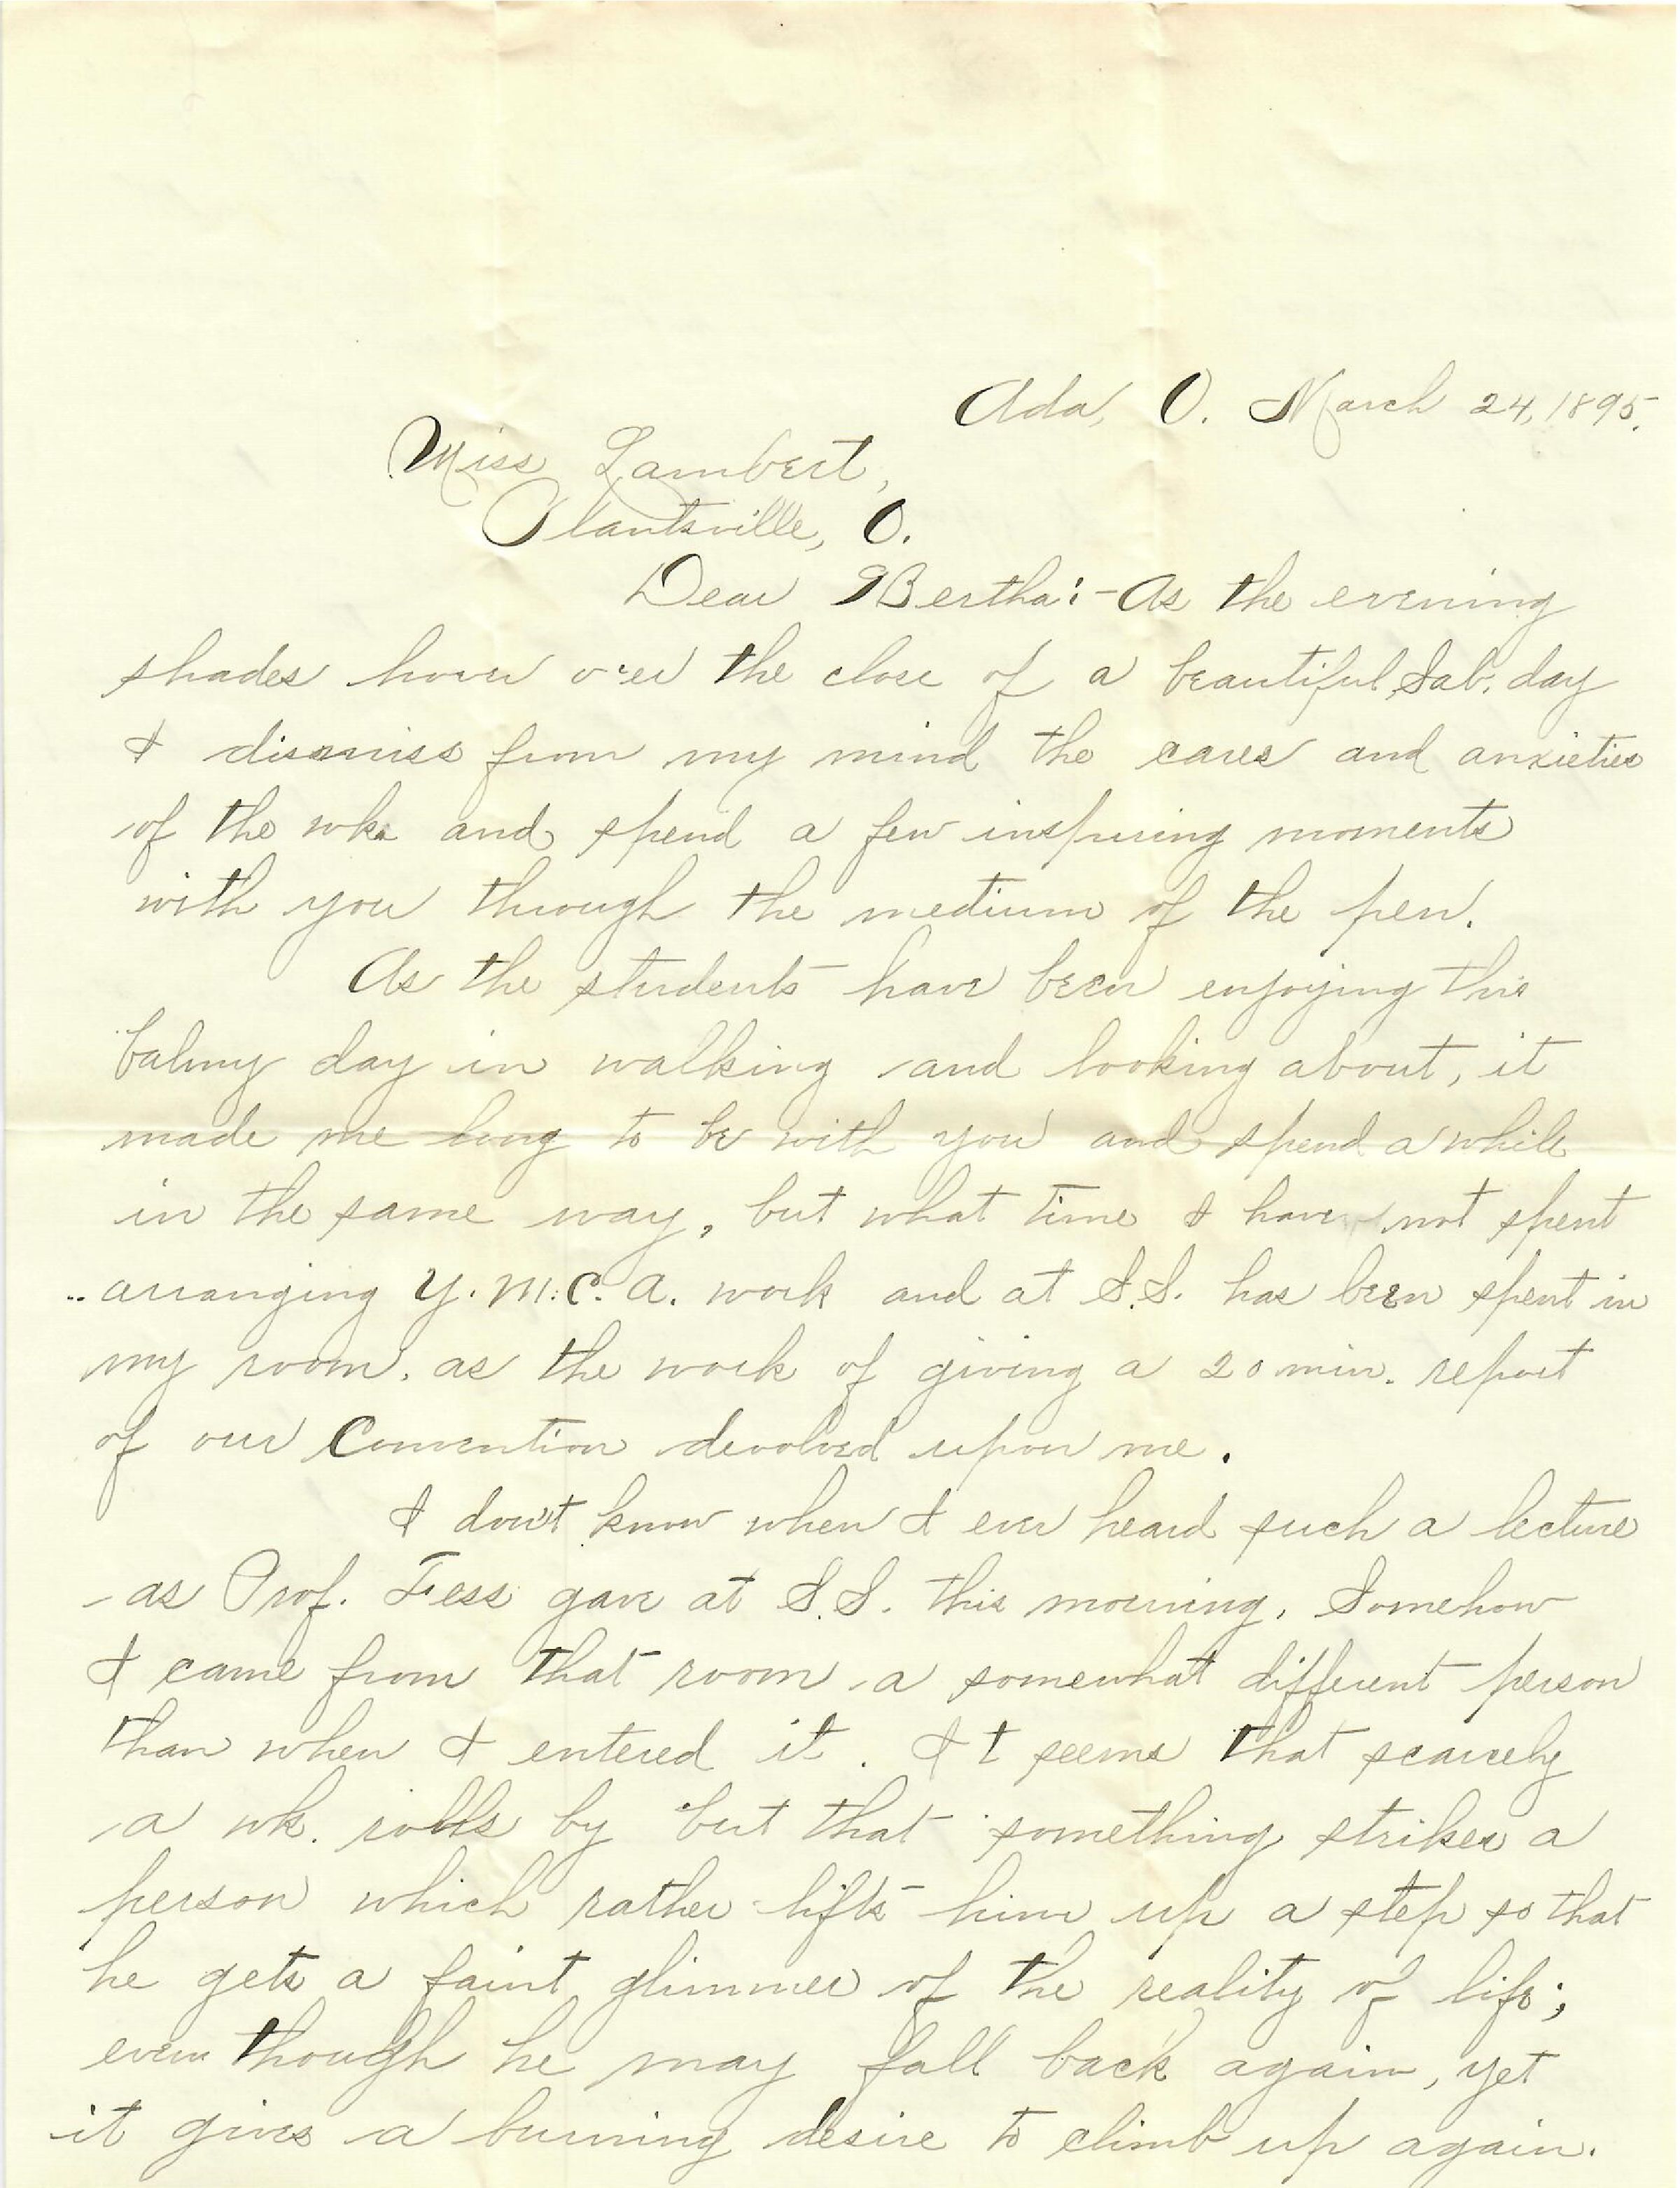 Ada, O. March 24, 1895.
Miss Lambert,
Plantsville, O.
Dear Bertha:- As the evening
shades hover o'er the close of a beautiful Sab. day
I dismiss from my mind the cares and anxieties
of the wk. and spend a few inspiring moments
with you through the medium of the pen.
As the students have been enjoying this
balmy day in walking and looking about, it
made me long to be with you and spend a while
in the same way, but what time I have not spent
arranging Y.M.C.A. work and at S.S. has been spent in
my room, as the work of giving a 20 min. report
of our Convention devolved upon me.
I don't know when I ever heard such a lecture
as Prof. Fess gave at S.S. this morning. Somehow
I came from that room a somewhat different person
than when I entered it. It seems that scarcely
a wk. rolls by but that something strikes a
person which rather lifts him up a step so that
he gets a faint glimmer of the reality of life;
even though he may fall back again, yet
it gives a burning desire to climb up again.